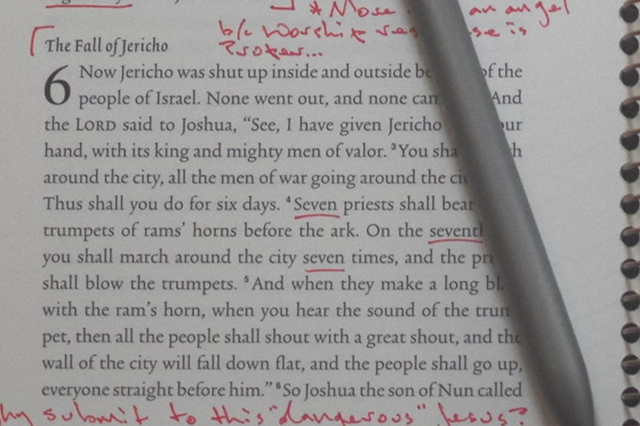 * More an angel
b/c worship response is
Proper...
The Fall of Jericho
6 Now Jericho was shut up inside and outside be of the
people of Israel. None went out, and none can And
the LORD said to Joshua, “See, I have given Jericho our
hand, with its king and mighty men of valor. ³You sha h
around the city, all the men of war going around the ci
Thus shall you do for six days. ⁴Seven priests shall bear
trumpets of rams’ horns before the ark. On the seventh
you shall march around the city seven times, and the pri
shall blow the trumpets. ⁵And when they make a long bl
with the ram’s horn, when you hear the sound of the trum
pet, then all the people shall shout with a great shout, and the
wall of the city will fall down flat, and the people shall go up,
everyone straight before him.” ⁶So Joshua the son of Nun called
hy submit to this "dangerous" Jesus?